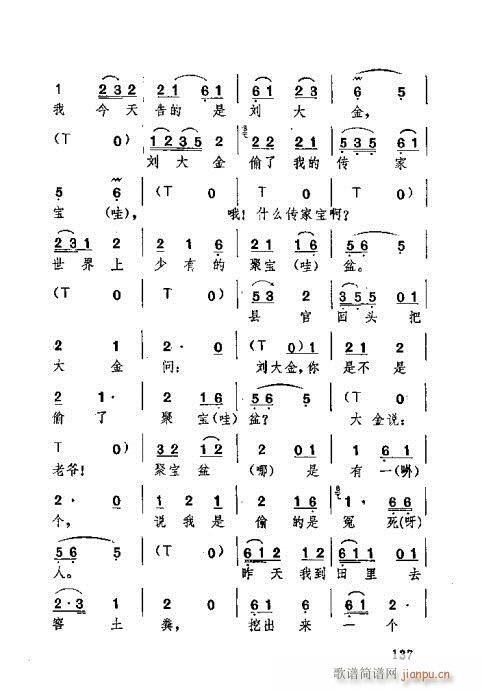 1 232 21 61 231 2 6 5
我 今天 告的 是 刘 大 金，
(T 0) 1235 2 22 2 35 61
刘大金 偷了 我的 传 家
5 6 (T 0 T 0 T 0)
宝 (哇)， 哦！什么传家宝啊？
231 2 2 1 6 21 16 56 5
世界上 少有的 聚宝(哇)盆。
(T 0) 53 2 355 01
县官 回头 把
2 1 2· 0 (T 0)1 21 2
大金 问： 刘大金，你 是不 是
2 1· 2 216 56 5 (T 0
偷了 聚宝(哇)盆？ 大金说：
T 0) 32 12 2 01 6 1
老爷！ 聚宝盆 (哪) 是 有一(啊)
2· 0 12 1 2 16 1· 66
个， 说我是 偷的是 冤 死(呀)
56 5 (T 0) 612 12 01
人。 昨天我到田里去
2·3 1 2· 0 61 2 61· 2
窖土粪， 挖出来一个
137
歌谱简谱网
jianpu.cn